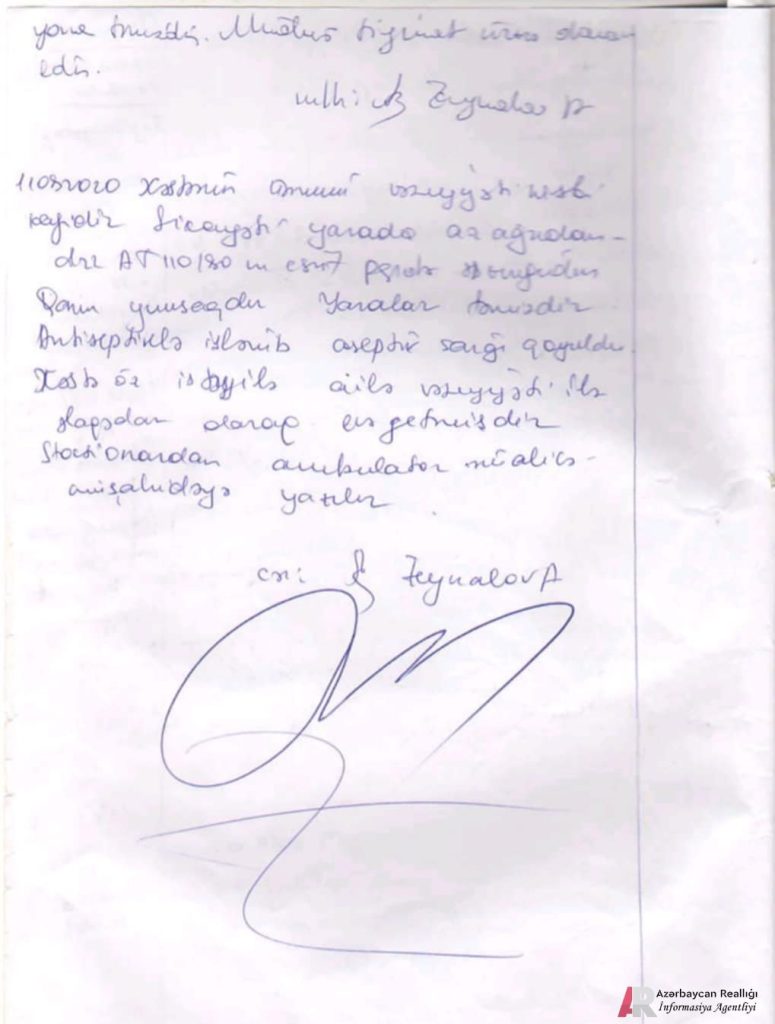 yara təmizdir. Müalicə
edir.
Zeynalov A
11082020 Xəstənin ümumi vəziyyəti nisbi
kafidir Şikayəti yarada az ağrıdan-
dır AT 110/80 mm
Qarın yumşaqdır Yaralar təmizdir
Antiseptiklə işlənib aseptik sarğı qoyuldu.
Xəstə öz istəyilə ailə vəziyyəti ilə
əlaqədar olaraq evə getmişdir
Stasionardan ambulator müalicə-
müşahidəyə yazılır.
Zeynalov A
Azərbaycan Reallığı
İnformasiya Agentliyi